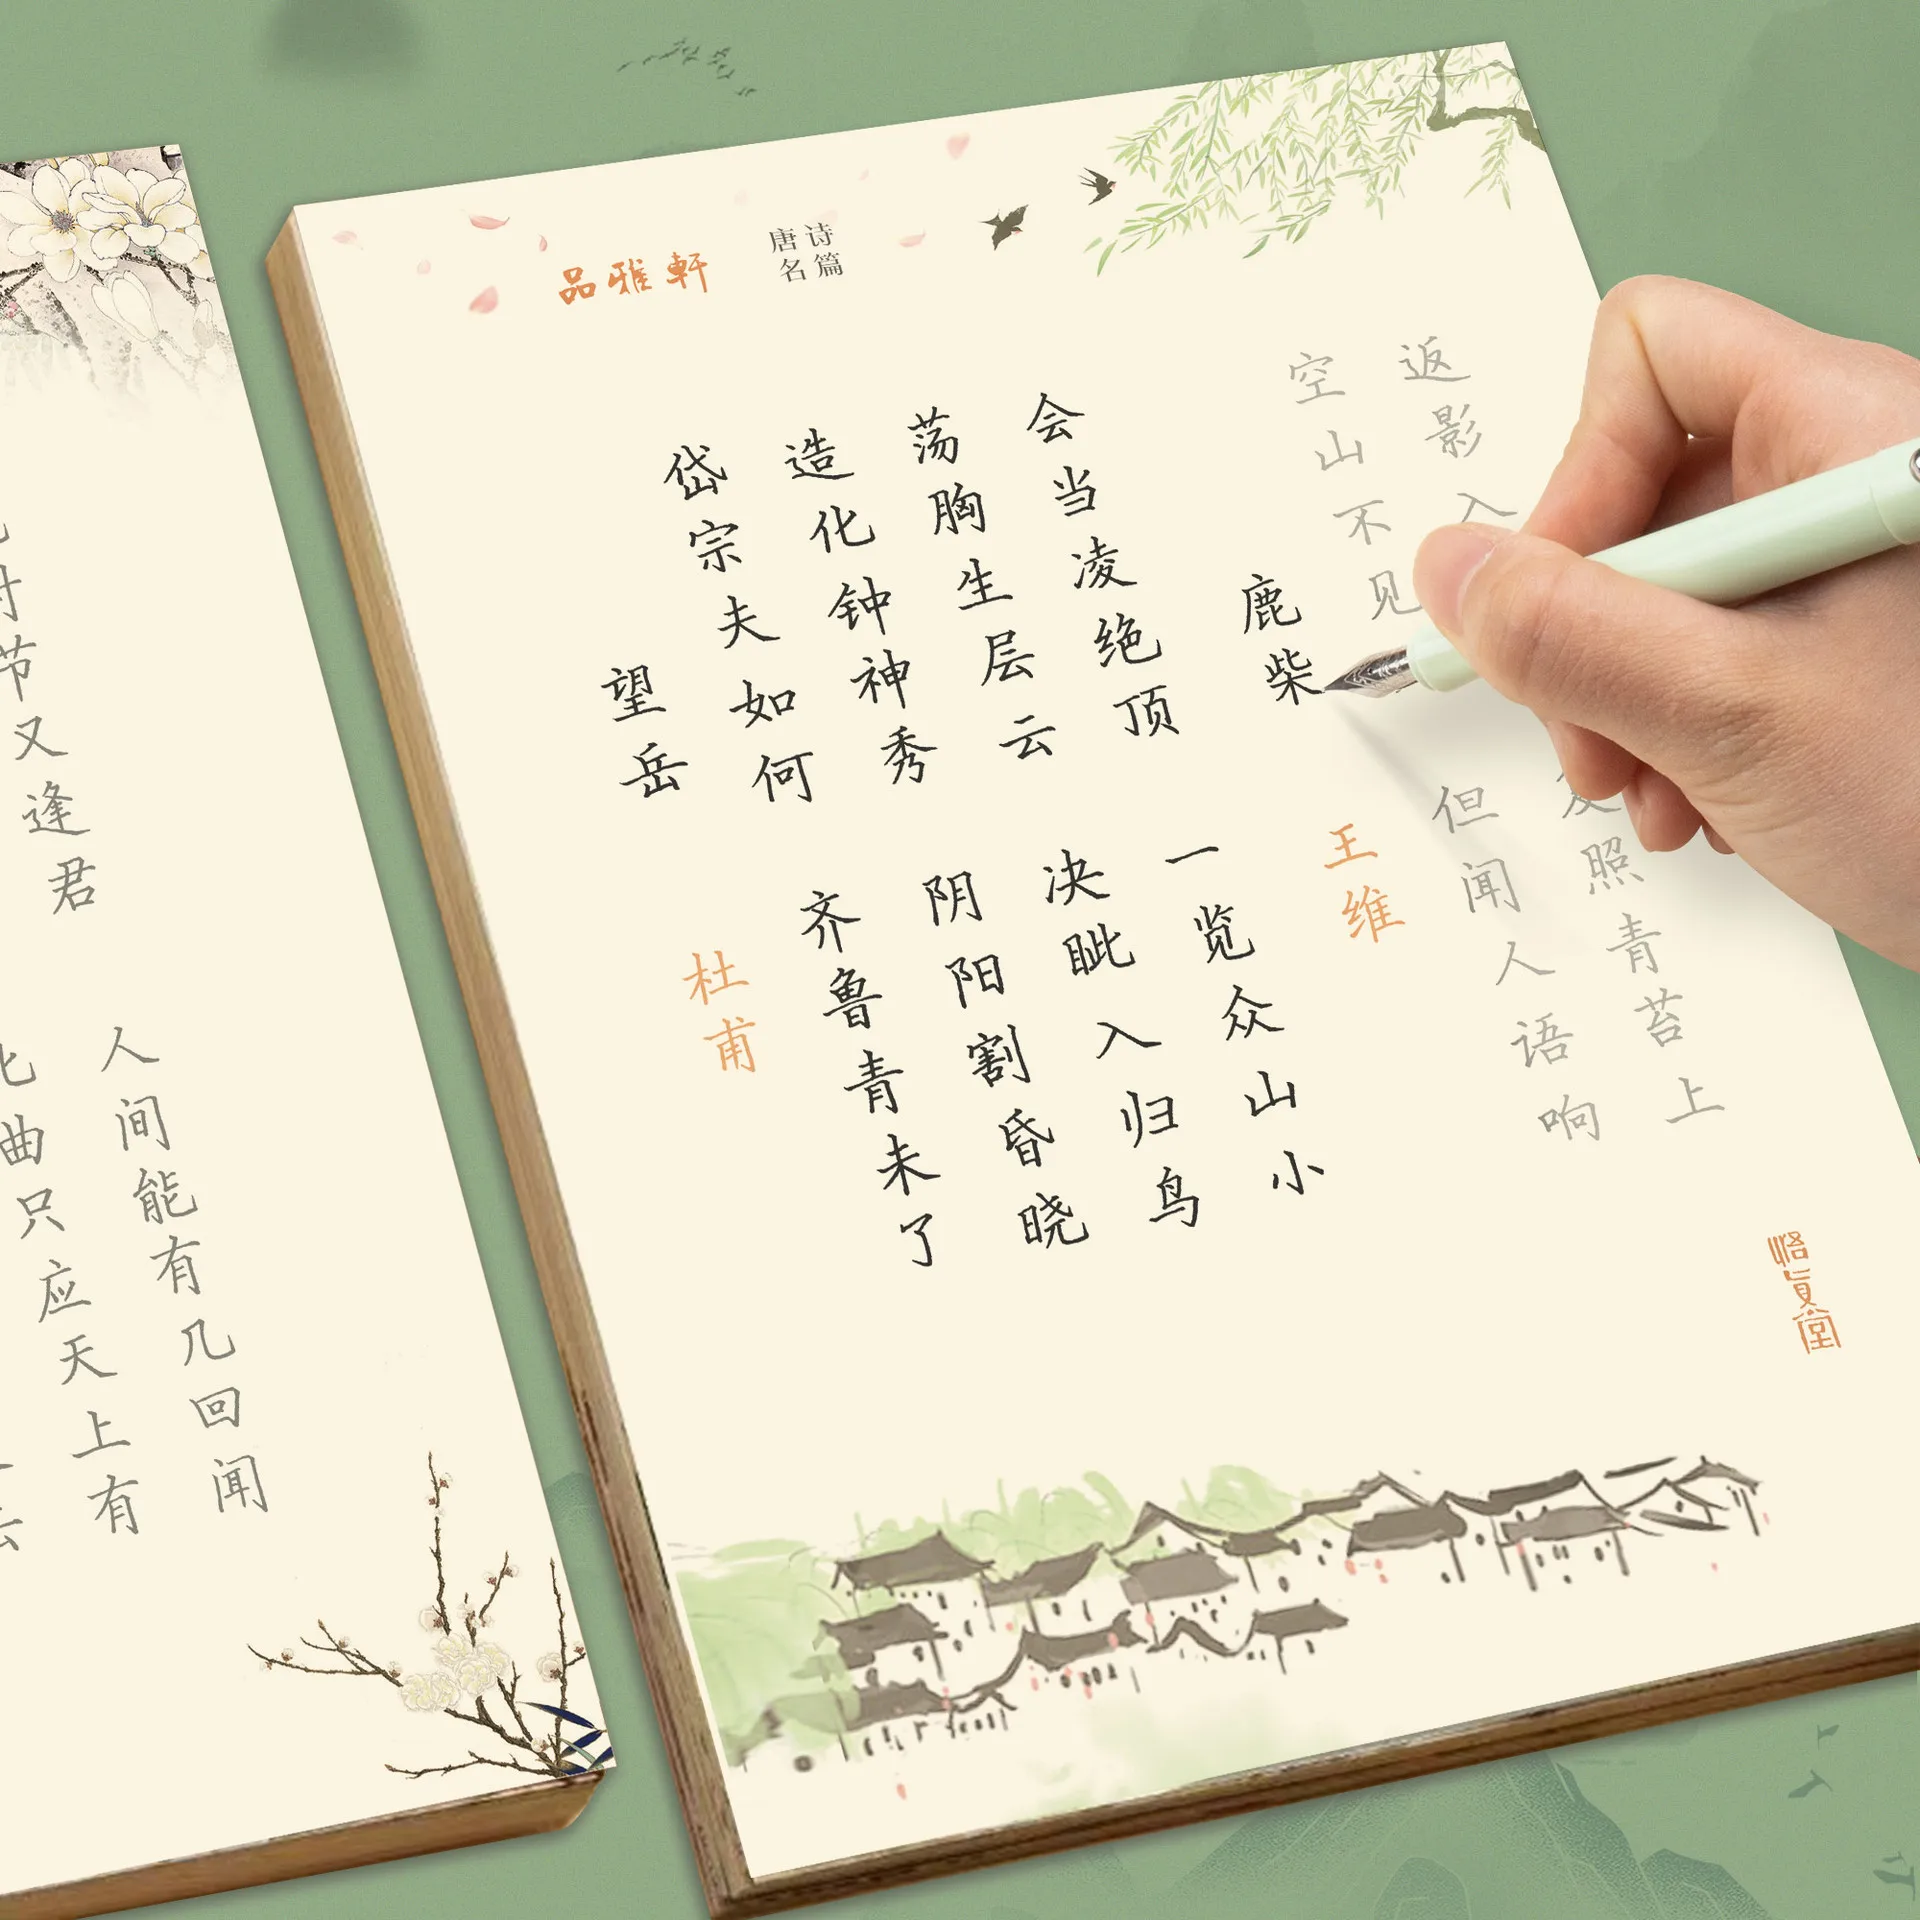 节又逢君
曲只应天上有
人间能有几回闻
品雅軒
唐诗
名篇
望岳
杜甫
岱宗夫如何
齐鲁青未了
造化钟神秀
阴阳割昏晓
荡胸生层云
决眦入归鸟
会当凌绝顶
一览众山小
鹿柴
王维
空山不见
但闻人语响
返影入
照青苔上